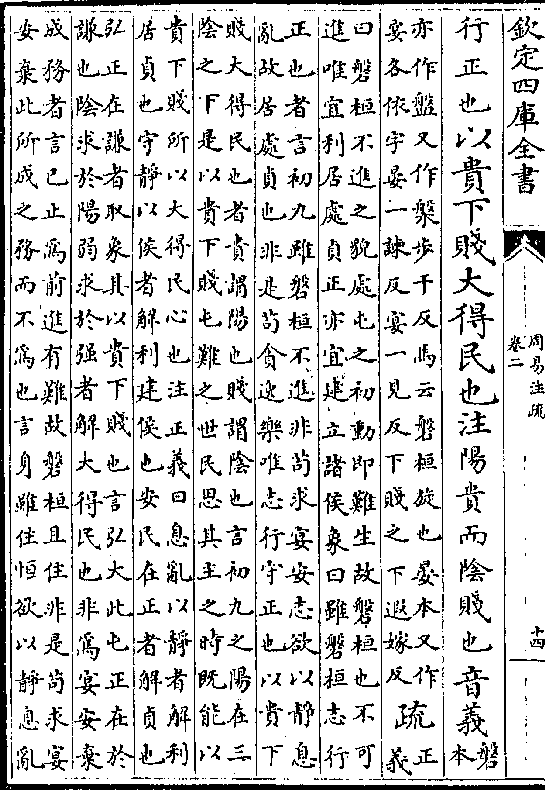 欽定四庫全書
周易注疏
卷二
十四
行正也以貴下賤大得民也注陽貴而陰賤也音義磐
本
亦作盤又作槃步干反馬云磐桓旋也晏本又作
宴各依字晏一諫反宴一見反下賤之下遐嫁反
疏正
義
曰磐桓不進之貌處屯之初動即難生故磐桓也不可
進唯宜利居處貞正亦宜建立諸侯象曰雖磐桓志行
正也者言初九雖磐桓不進非苟求宴安志欲以靜息
亂故居處貞也非是苟貪逸樂唯志行守正也以貴下
賤大得民也者貴謂陽也賤謂陰也言初九之陽在三
陰之下是以貴下賤屯難之世民思其主之時既能以
貴下賤所以大得民心也注正義曰息亂以靜者解利
居貞也守靜以侯者解利建侯也安民在正者解貞也
弘正在謙者取象其以貴下賤也言弘大此屯正在於
謙也陰求於陽弱求於强者解大得民也非為宴安棄
成務者言已止為前進有難故磐桓且住非是苟求宴
安棄此所成之務而不為也言身雖住恒欲以靜息亂